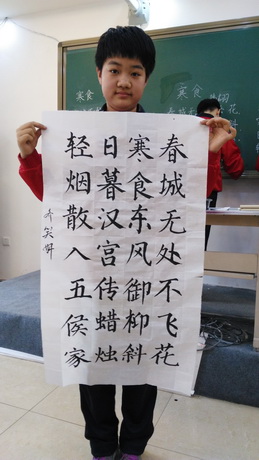 春城无处不飞花
寒食东风御柳斜
日暮汉宫传蜡烛
轻烟散入五侯家
寒食
寒食
花